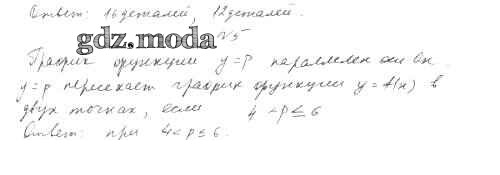 Ответ: 16 деталей, 12 деталей.
gdz.moda
№5
График функции y=p параллелен оси Ox.
y=p пересекает график функции y=f(x) в
двух точках, если 4<p≤6
Ответ: при 4<p≤6.